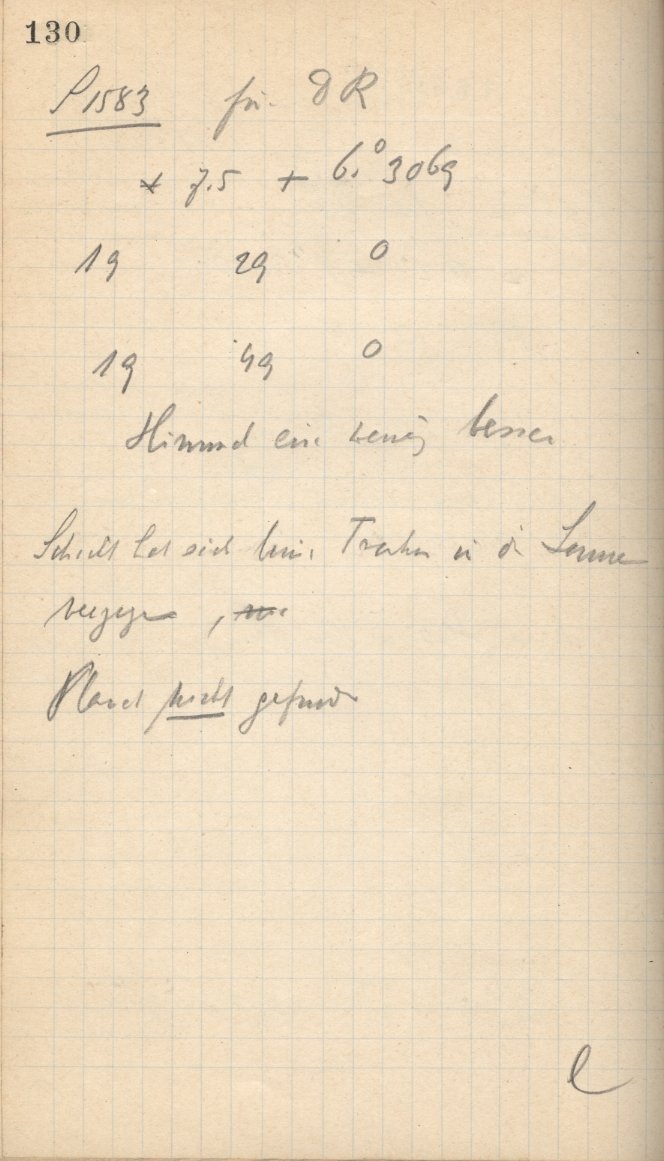 130
P 1583 für DR
* 7.5 + 6.°3069
19 29 0
19 49 0
Himmel ein wenig besser
Schicht hat sich beim Trocknen in der Sonne
verzogen,
Planet nicht gefunden